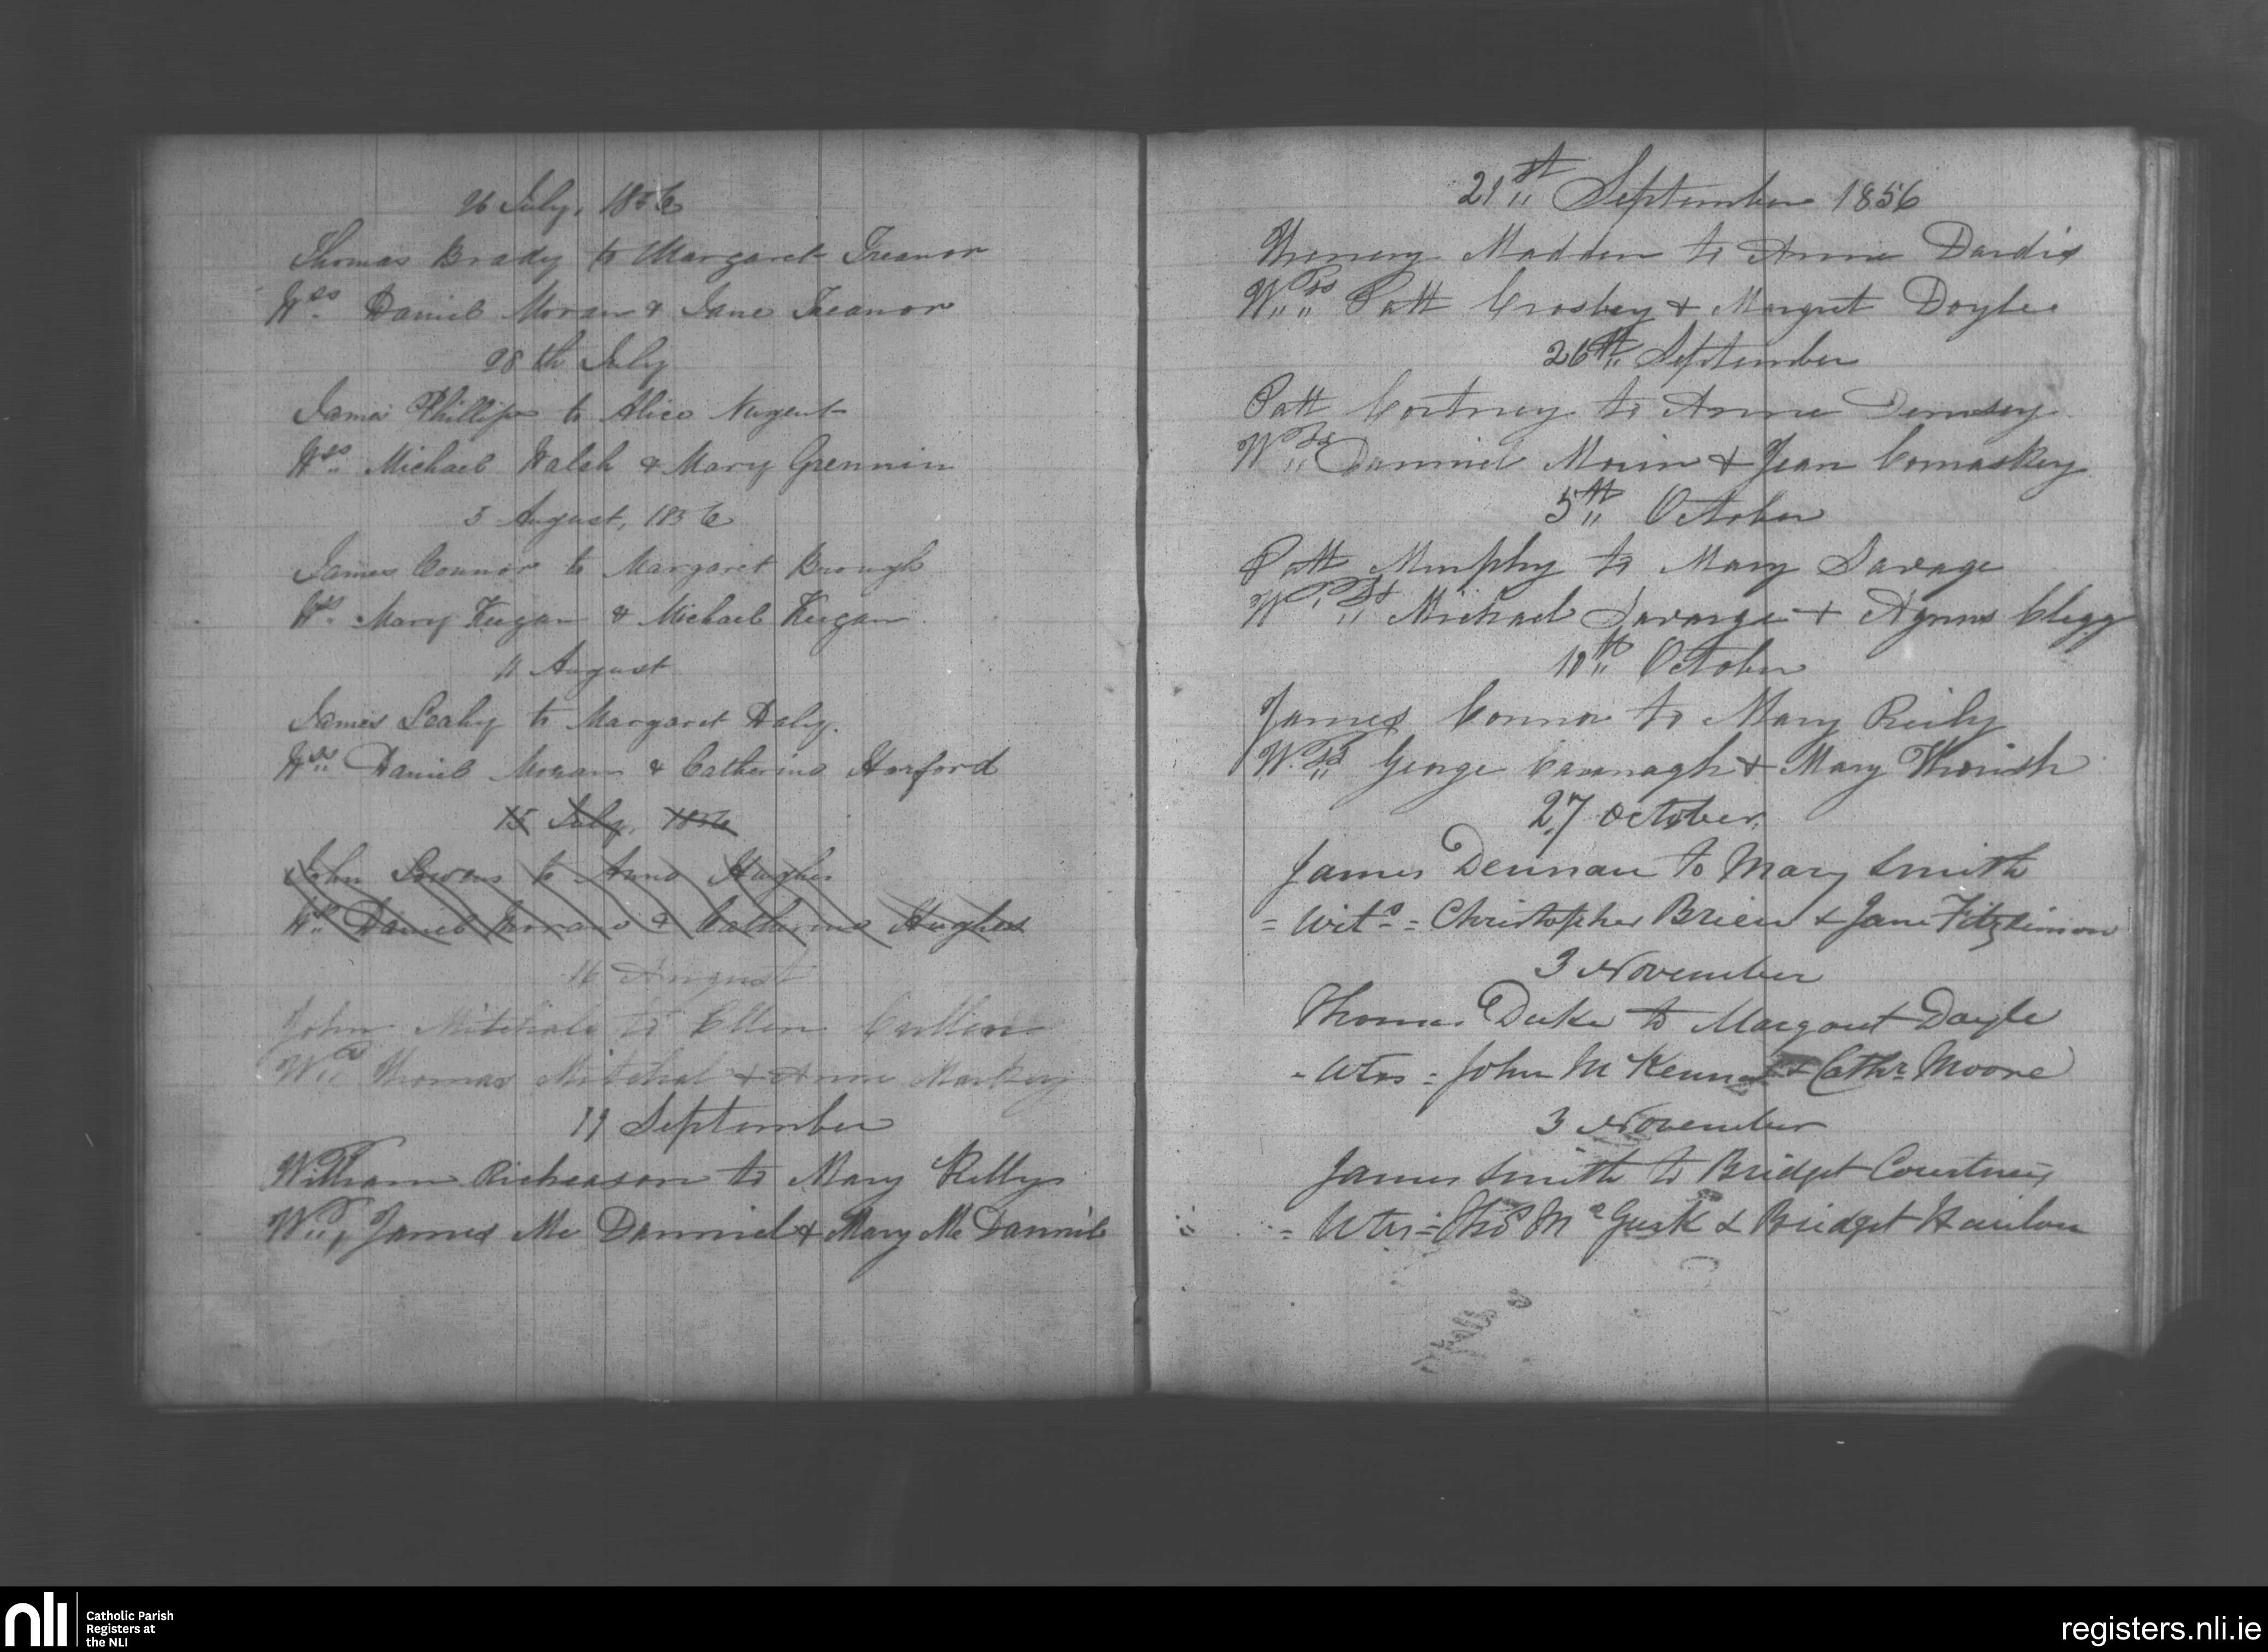 26 July, 1856
Thomas Brady to Margaret Treanor
Wss Daniel Moran & Jane Treanor
28th July
James Phillips to Alice Nugent
Wss Michael Walsh & Mary Grennin
3 August, 1856
James Connor to Margaret Brough
Ws Mary Keegan & Michael Keegan
11 August
James Leahy to Margaret Daly.
Wss Daniel Moran & Catherine Harford
15 July, 1856
John to Anne Hughes
Wss Daniel Moran & Catherine Hughes
16 August
John to Ellen Cullen
Wss Thomas Mitchal & Anne Markey
19 September
William Richeason to Mary Kelly
Ws James Mc Danniel & Mary Mc Danniel
21st September 1856
Madden to Anne Dardis
Wss Patt Crosbey & Margret Doyle
26th September
Patt Cortney to Anne Demsey
Wss Danniel Morin & Jean Comaskey
5th October
Patt Murphy to Mary Savage
Wss Michael Savarge & Agnes Clegg
10th October
James Connor to Mary Reily
Wss George Cavanagh & Mary
27 October
James Dennan to Mary Smith
= Wits = Christopher Brien & Jane Fitzsimon
3 November
Thomas Duke to Margaret Doyle
- Wtss = John McKenna & Cathr Moore
3 November
James Smith to Bridget Courtney
= Wtss = Thos McGusk & Bridget Hanlon
nli
Catholic Parish
Registers at
the NLI
registers.nli.ie